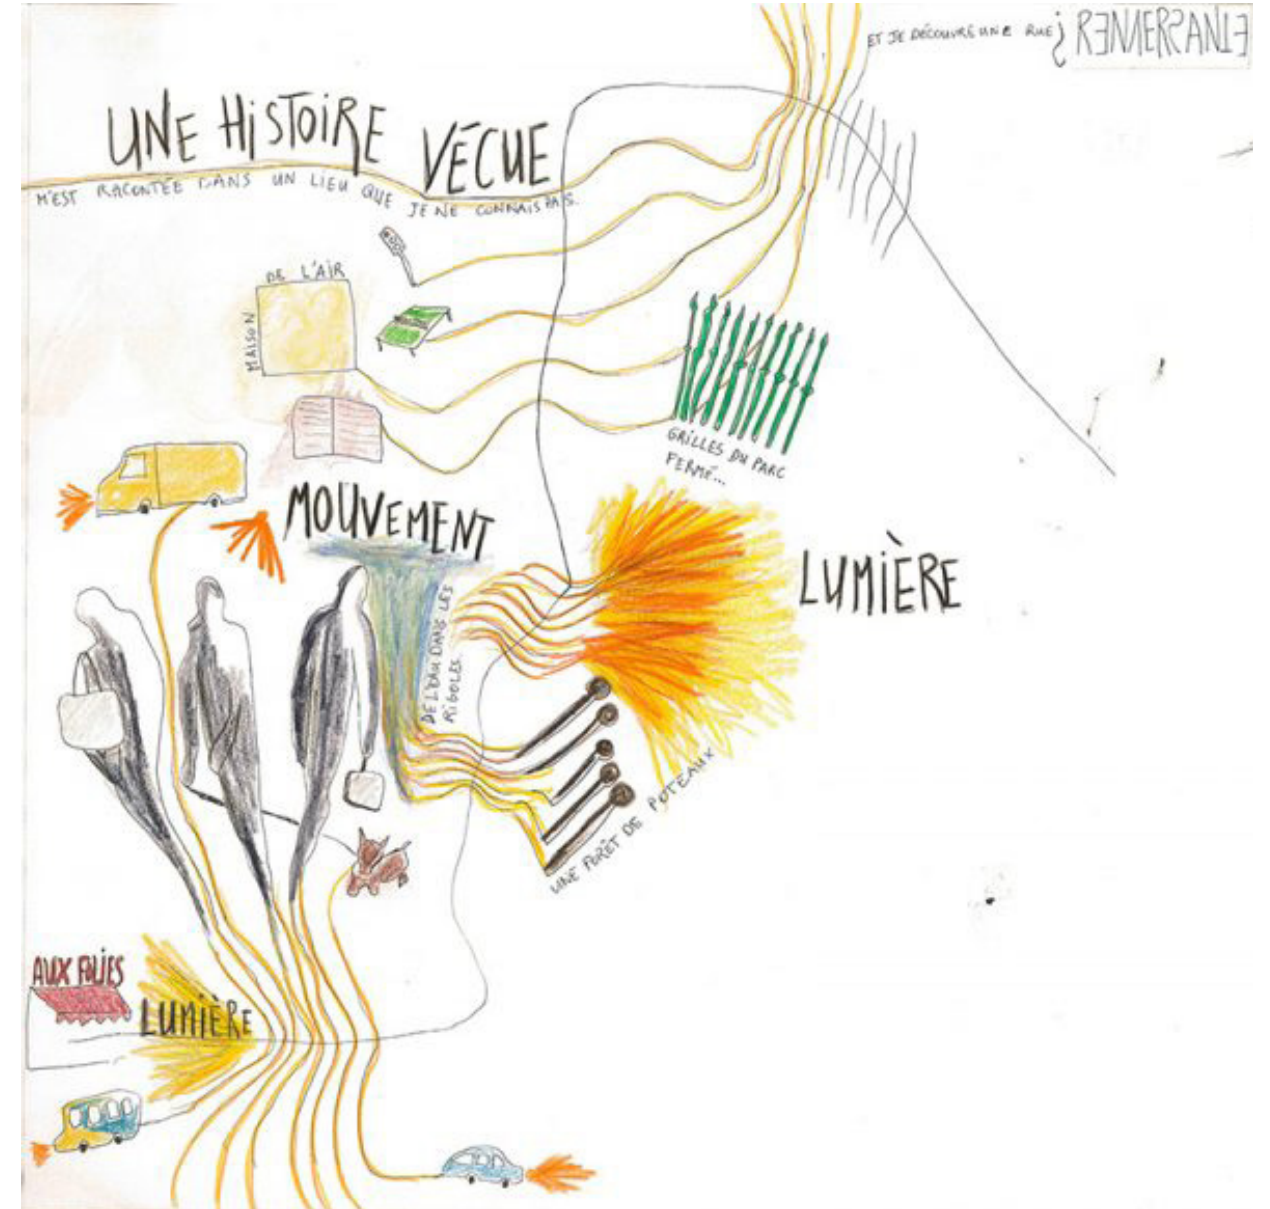 ET JE DÉCOUVRE UNE RUE ¿ RENVERSANTE
UNE HISTOIRE VÉCUE
M'EST RACONTÉE DANS UN LIEU QUE JE NE CONNAIS PAS.
DE L'AIR
MAISON
GRILLES DU PARC
FERMÉ...
MOUVEMENT
LUMIÈRE
DE L'EAU DANS LES
RIGOLES
UNE FORÊT DE POTEAUX
AUX FOLIES
LUMIÈRE